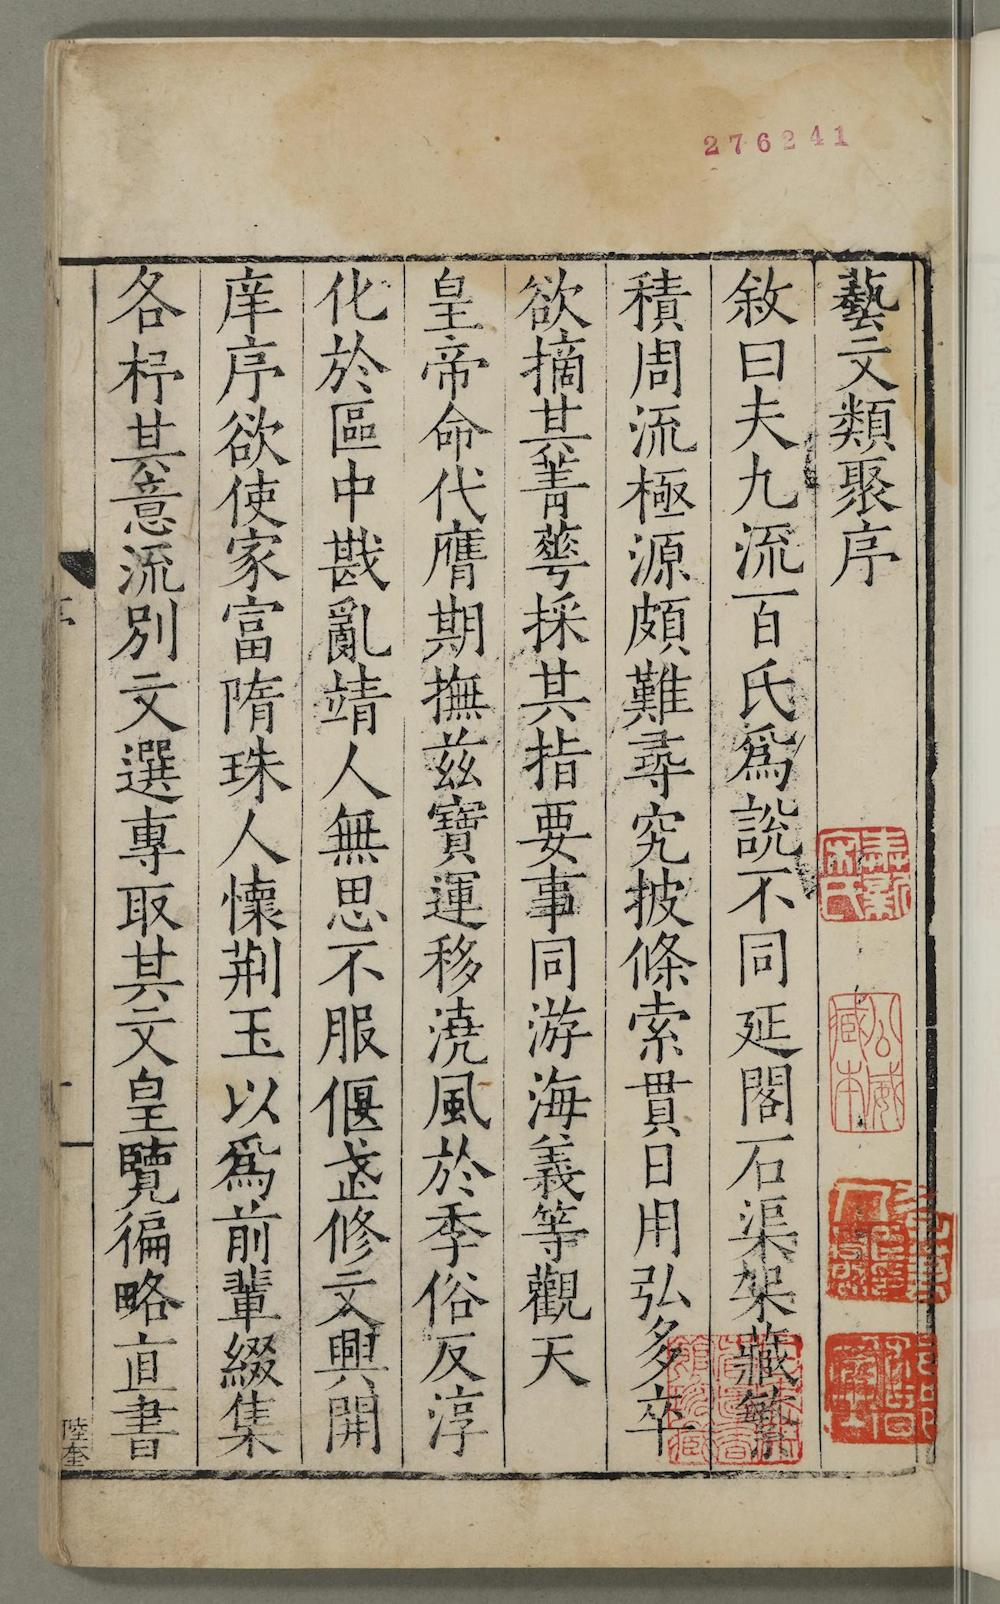 276241
藝文類聚序
敘曰夫九流百氏爲說不同延閣石渠架藏繁
積周流極源頗難尋究披條索貫日用弘多卒
欲摘其菁華採其指要事同游海義等觀天
皇帝命代膺期撫茲寶運移澆風於季俗反淳
化於區中戡亂靖人無思不服偃武修文興開
庠序欲使家富隋珠人懷荆玉以爲前輩綴集
各杼其意流別文選專取其文皇覽徧略直書
陸奎